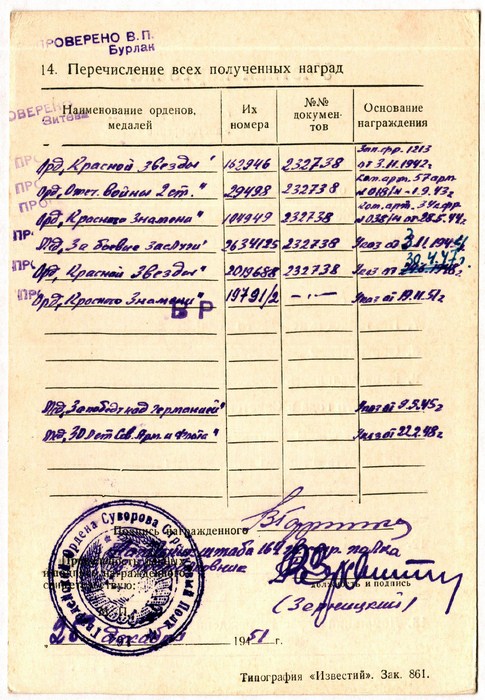 ПРОВЕРЕНО В.П.
Бурлак
14. Перечисление всех полученных наград
Наименование орденов, медалей
Их номера
№№ документов
Основание награждения
Орд. „Красной Звезды" 162946 232738 Зап. фр. 1213 от 3.11.1942 г.
Орд. „Отеч. войны 2 ст." 29498 232738 ком. арт. 57 арм. №018/н - 1.9.43 г.
Орд. „Красного Знамени" 104949 232738 №038/н от 28.5.44 г.
Мд. „За боевые заслуги" 2634125 232738 Указ от 3.11.1944 г.
Орд. „Красной Звезды" 2019688 232738 Указ от 30.4.47 г.
Орд. „Красного Знамени" 19791/2 — „ — Указ от 19.11.51 г.
ВР
Мд. „За победу над Германией" Указ от 9.5.45 г.
Мд. „30 лет Сов. Арм. и Флота" Указ от 22.2.48 г.
Подпись награжденного
штаба полка
должность и подпись
(Зерницкий)
28 декабря 1951 г.
Типография «Известий». Зак. 861.